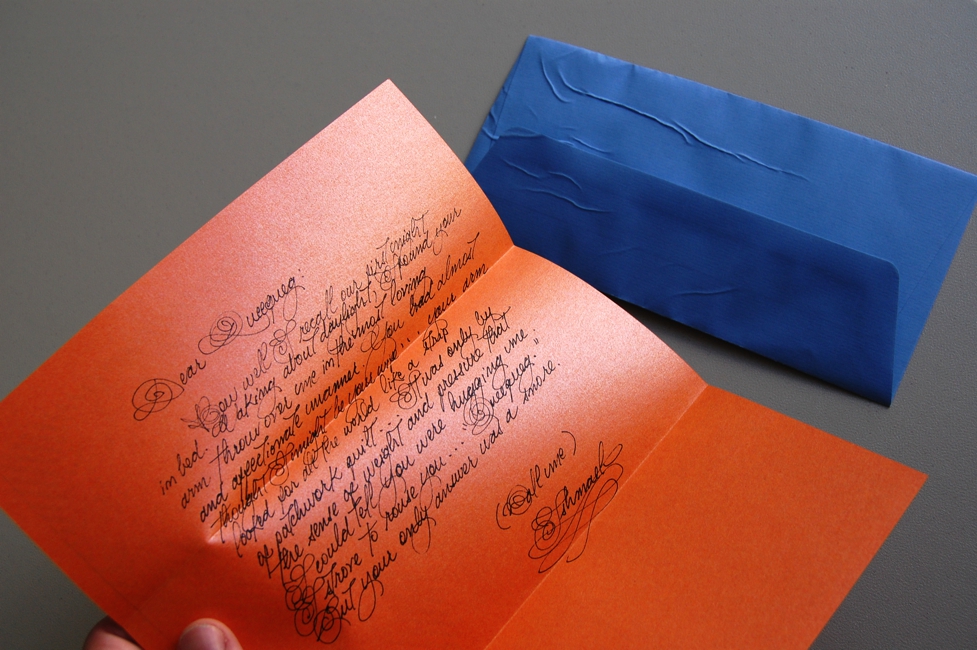 Dear Queequeg:
How well I recall our first night
in bed. Waking about daylight, I found your
arm thrown over me in the most loving
and affectionate manner. You had almost
thought I might be your wife... your arm
looked for all the world like a strip
of patchwork quilt... It was only by
the sense of weight and pressure that
I could tell you were hugging me.
I strove to rouse you... "Queequeg."
But your only answer was a snore.
(Call me)
Ishmael